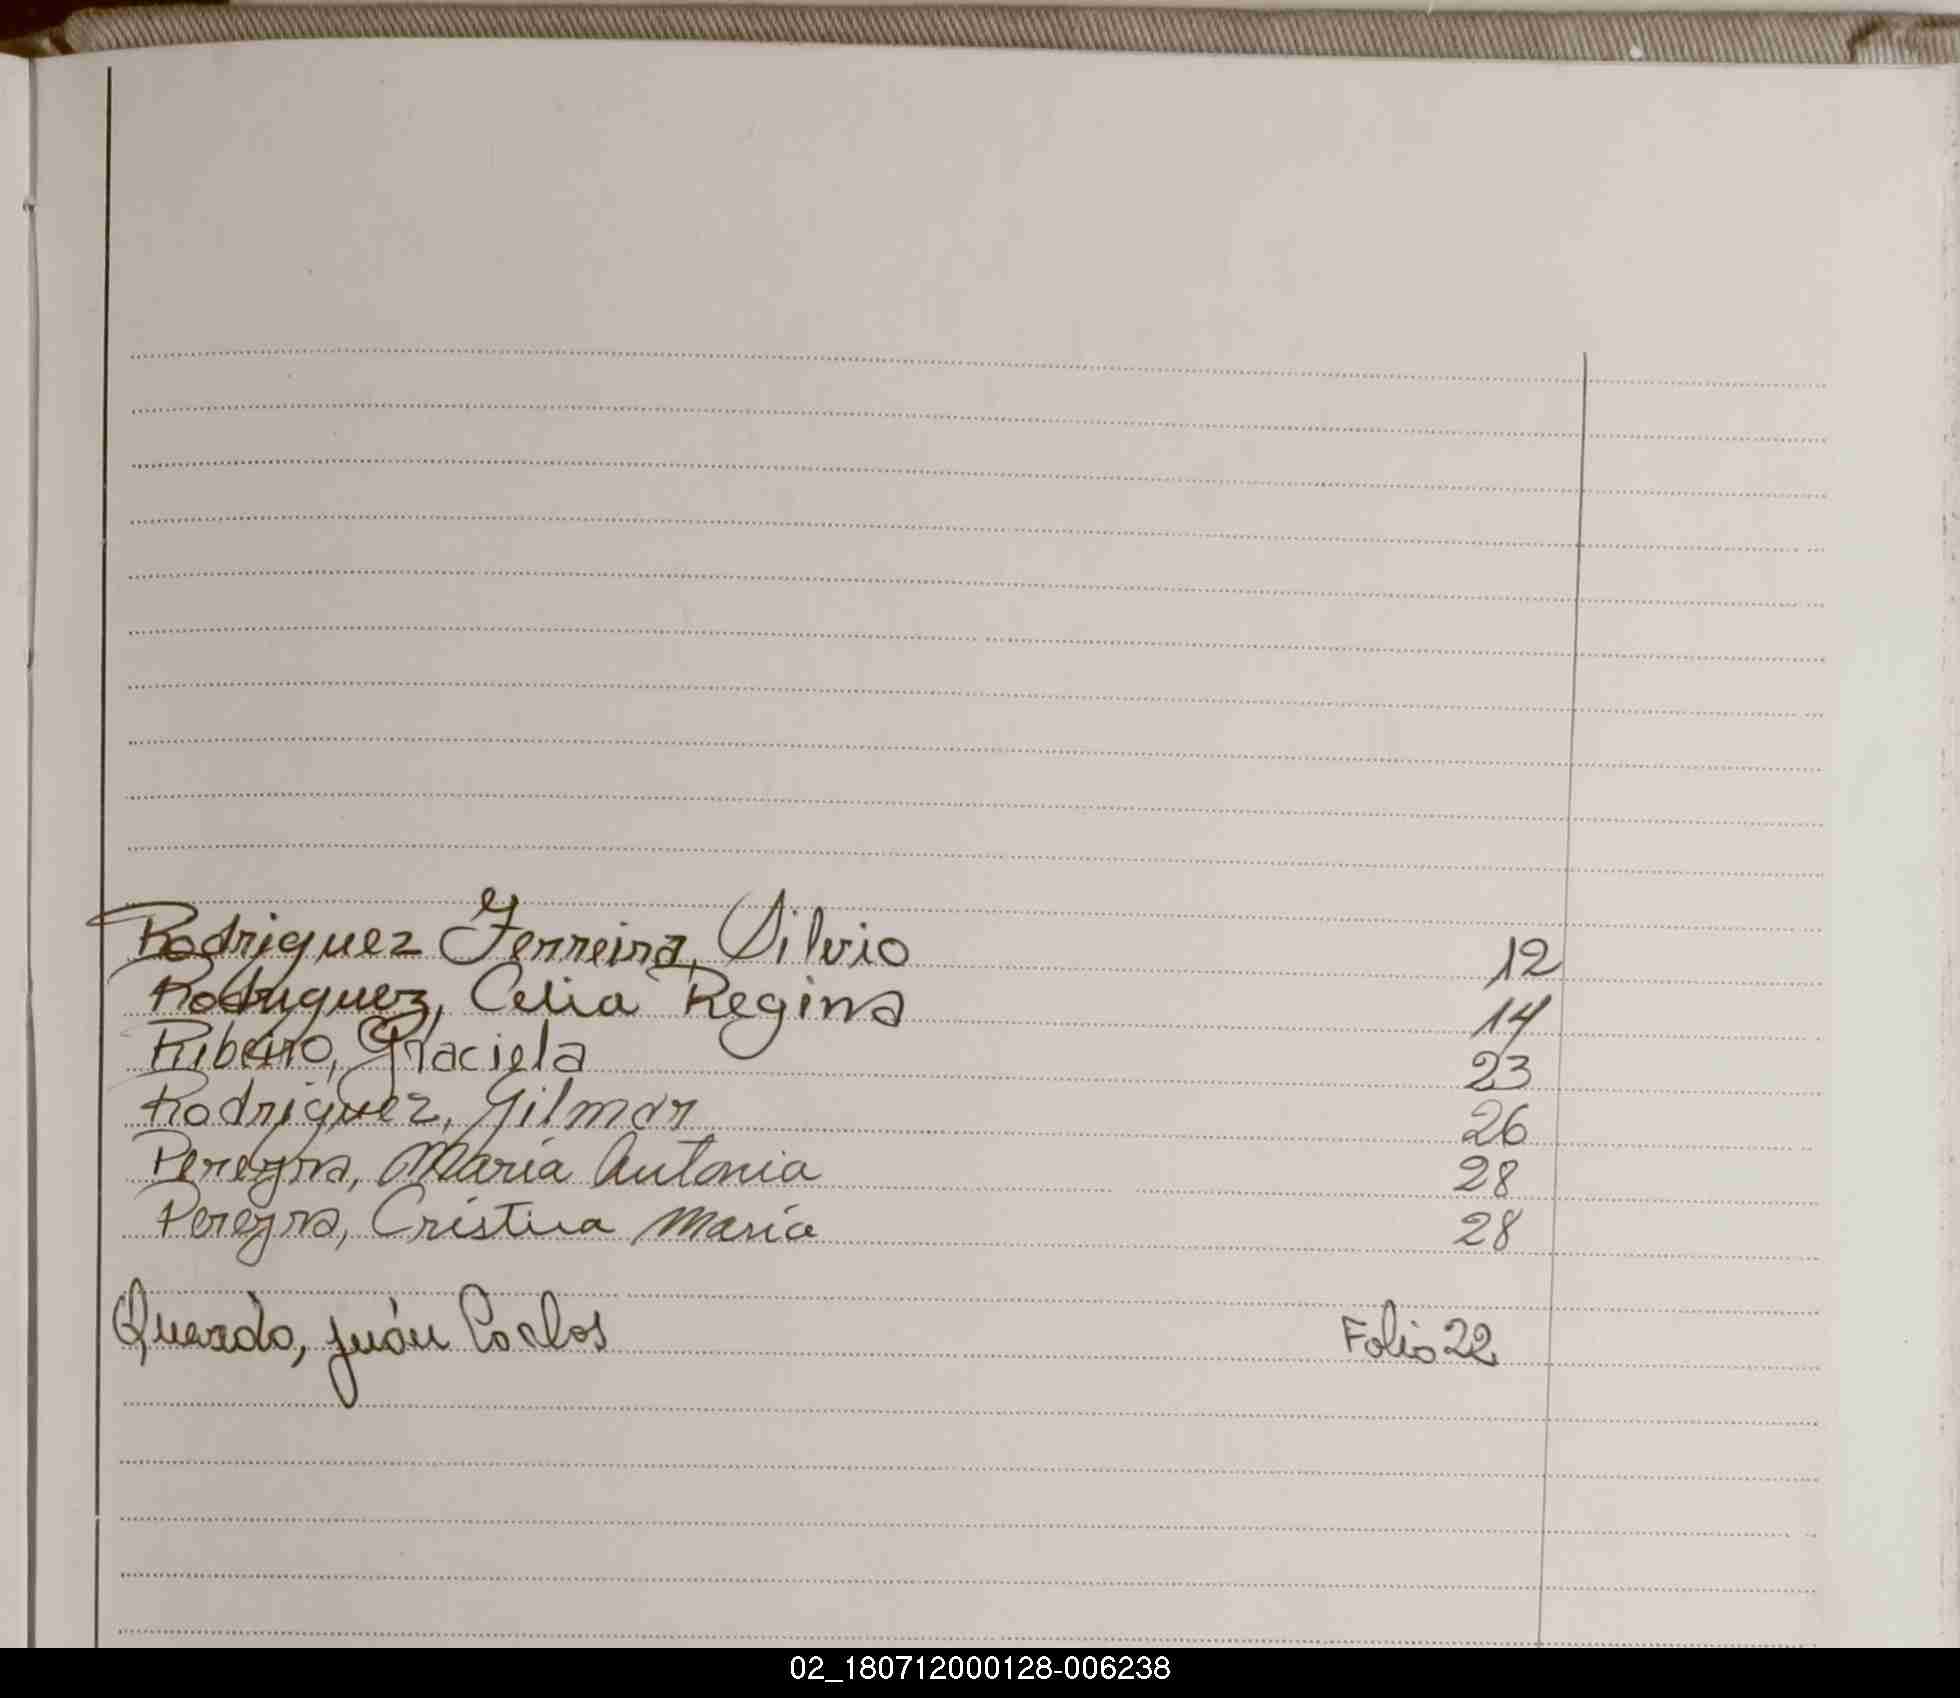 Rodriguez Ferreira, Silvio 12
Rodriguez, Celia Regina 14
Ribeiro, Graciela 23
Rodriguez, Gilmar 26
Pereyra, María Antonia 28
Pereyra, Cristina María 28
Juán Carlos Folio 22
02_180712000128-006238